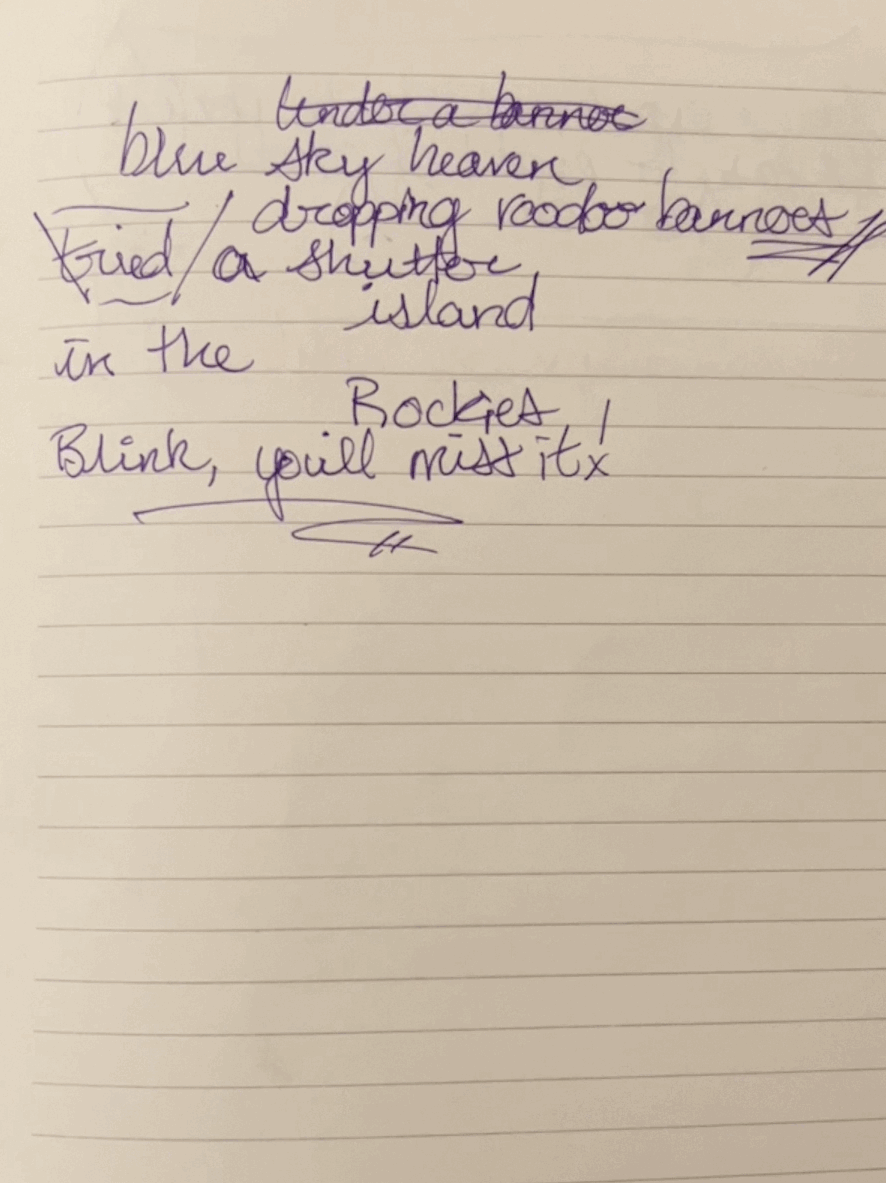 Under a banner
blue sky heaven
dropping voodoo banners
tried / a shutter
island
in the
Rockies
Blink, you'll miss it!